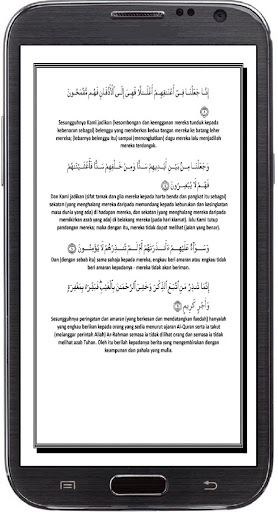 إِنَّا جَعَلْنَا فِىٓ أَعْنَـٰقِهِمْ أَغْلَـٰلًا فَهِىَ إِلَى ٱلْأَذْقَانِ فَهُم مُّقْمَحُونَ
Sesungguhnya Kami jadikan (kesombongan dan keengganan mereka tunduk kepada
kebenaran sebagai) belenggu yang memberkas kedua tangan mereka ke batang leher
mereka; (lebarnya belenggu itu) sampai (menongkatkan) dagu mereka lalu menjadilah
mereka terdongak.
وَجَعَلْنَا مِنۢ بَيْنِ أَيْدِيهِمْ سَدًّا وَمِنْ خَلْفِهِمْ سَدًّا فَأَغْشَيْنَـٰهُمْ
فَهُمْ لَا يُبْصِرُونَ
Dan Kami jadikan (sifat tamak dan gila mereka kepada harta benda dan pangkat itu sebagai)
sekatan (yang menghalang mereka daripada memandang kepada keburukan dan keingkatan
masa dunia yang ada) di hadapan mereka, dan sekatan (yang menghalang mereka daripada
memikirkan azab yang ada) di belakang mereka (pada hari kiamat). lalu Kami tutup
pandangan mereka; maka dengan itu, mereka tidak dapat melihat (jalan yang benar).
وَسَوَآءٌ عَلَيْهِمْ ءَأَنذَرْتَهُمْ أَمْ لَمْ تُنذِرْهُمْ لَا يُؤْمِنُونَ
Dan (dengan sebab itu) sama sahaja kepada mereka, engkau beri amaran atau engkau tidak
beri amaran kepadanya - mereka tidak akan beriman.
إِنَّمَا تُنذِرُ مَنِ ٱتَّبَعَ ٱلذِّكْرَ وَخَشِىَ ٱلرَّحْمَـٰنَ بِٱلْغَيْبِ فَبَشِّرْهُ بِمَغْفِرَةٍ
وَأَجْرٍ كَرِيمٍ
Sesungguhnya peringatan dan amaran (yang berkesan dan mendatangkan faedah) hanyalah
yang engkau berikan kepada orang yang sedia menurut ajaran Al-Quran serta ia takut
(melanggar perintah Allah) Ar-Rahman semasa ia tidak dilihat orang dan semasa ia tidak
melihat azab Tuhan. Oleh itu berilah kepadanya berita yang mengembirakan dengan
keampunan dan pahala yang mulia.